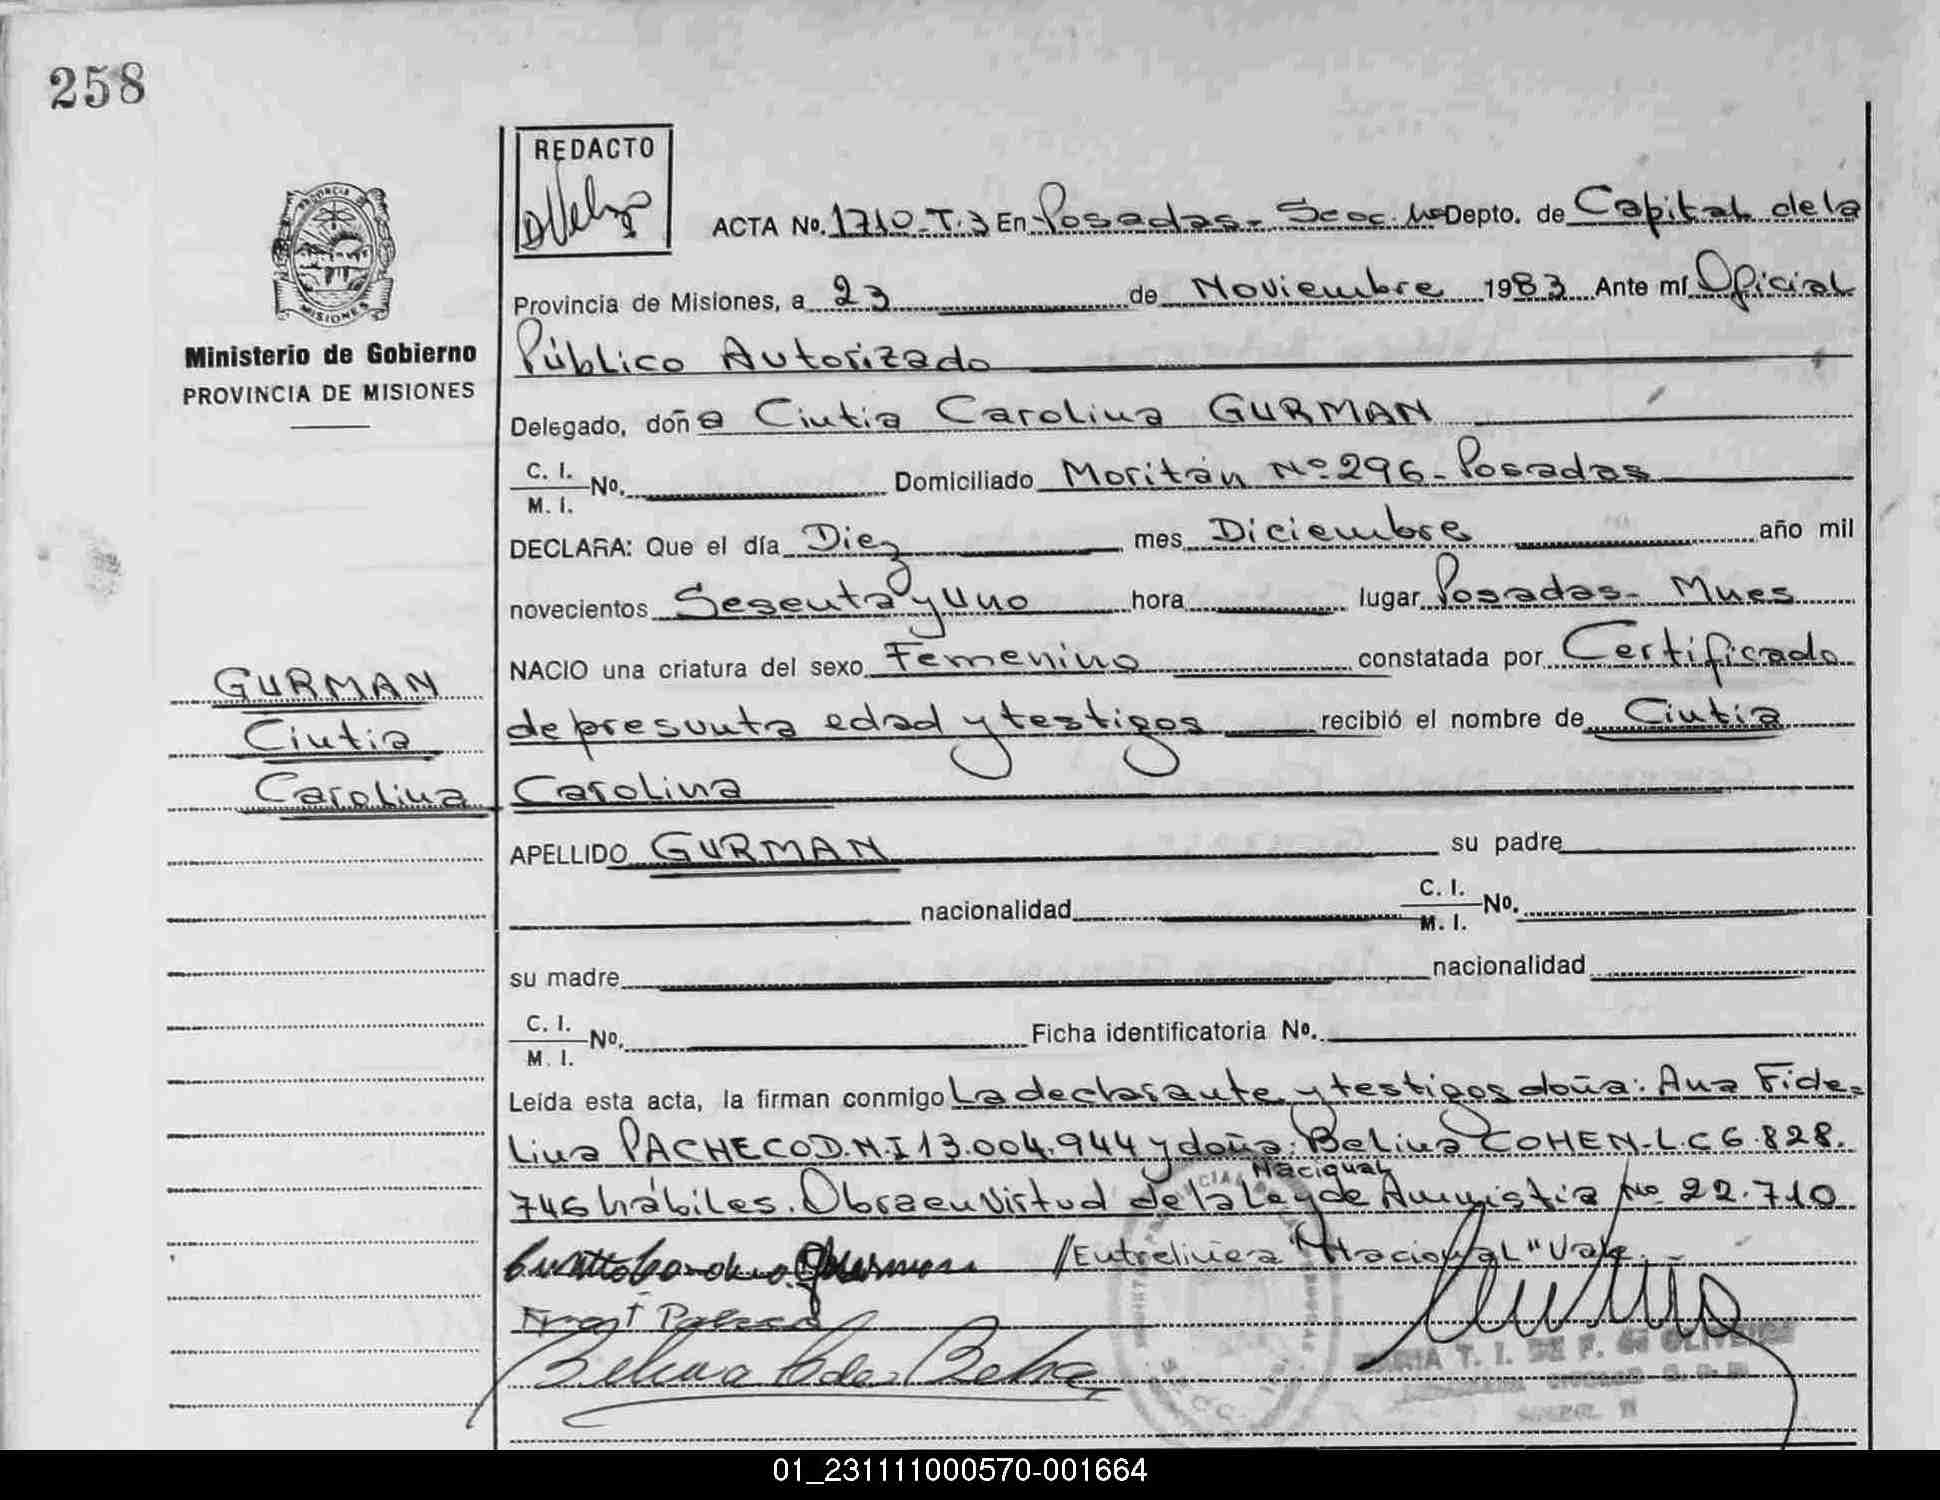 258
REDACTO
ACTA No. 1710-T.3 En Posadas- Secc. Depto. de Capital de la
PROVINCIA
MISIONES
Provincia de Misiones, a 23 de Noviembre 1983 Ante mí Oficial
Ministerio de Gobierno
Público Autorizado
PROVINCIA DE MISIONES
Delegado, doña Cintia Carolina GURMAN
C. I.
M. I. No. Domiciliado Moritán Nº 296- Posadas
DECLARA: Que el día Diez mes Diciembre año mil
novecientos Sesenta y Uno hora lugar Posadas- Mnes
NACIO una criatura del sexo Femenino constatada por Certificado
GURMAN
de presunta edad y testigos recibió el nombre de Cintia
Cintia
Carolina
Carolina
APELLIDO GURMAN su padre
nacionalidad C. I.
M. I. No.
su madre nacionalidad
C. I.
M. I. No. Ficha identificatoria Nº.
Leída esta acta, la firman conmigo La declarante y testigos doña: Ana Fide-
lina PACHECO D.N.I 13.004.944 y doña: Belina COHEN-L.C 6.828.
Nacional
746 hábiles. Obra en Virtud de la Ley de Amnistia Nº 22.710
//Entrelinea "Nacional" Vale.-
MARIA T. I. DE F. DE OLIVEIRA
01_231111000570-001664